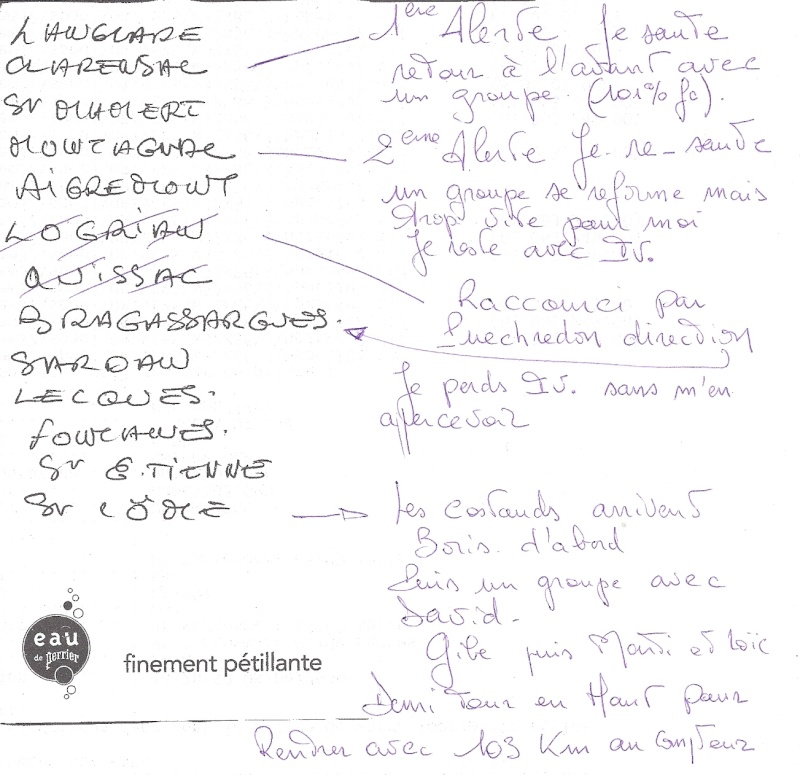 LANGLADE
CLARENSAC
St MAMERT
MONTAGNAC
AIGREMONT
LOGRIAN
QUISSAC
BRAGASSARGUES.
SARDAN
LECQUES.
FONTANES.
St E.TIENNE
St CÔME
1ère Alerte Je saute
retour à l'avant avec
un groupe. (101% fc).
2ème Alerte Je re-saute
un groupe se reforme mais
trop vite pour moi
Je reste avec IV.
Raccourci par
Puechredon direction
Je perds IV. sans m'en
apercevoir
Les costauds arrivent
Boris. d'abord
Puis un groupe avec
David.
Gibe puis Mardi et Loïc
Demi tour en Haut pour
Rentrer avec 103 Km au compteur
eau
de perrier
finement pétillante